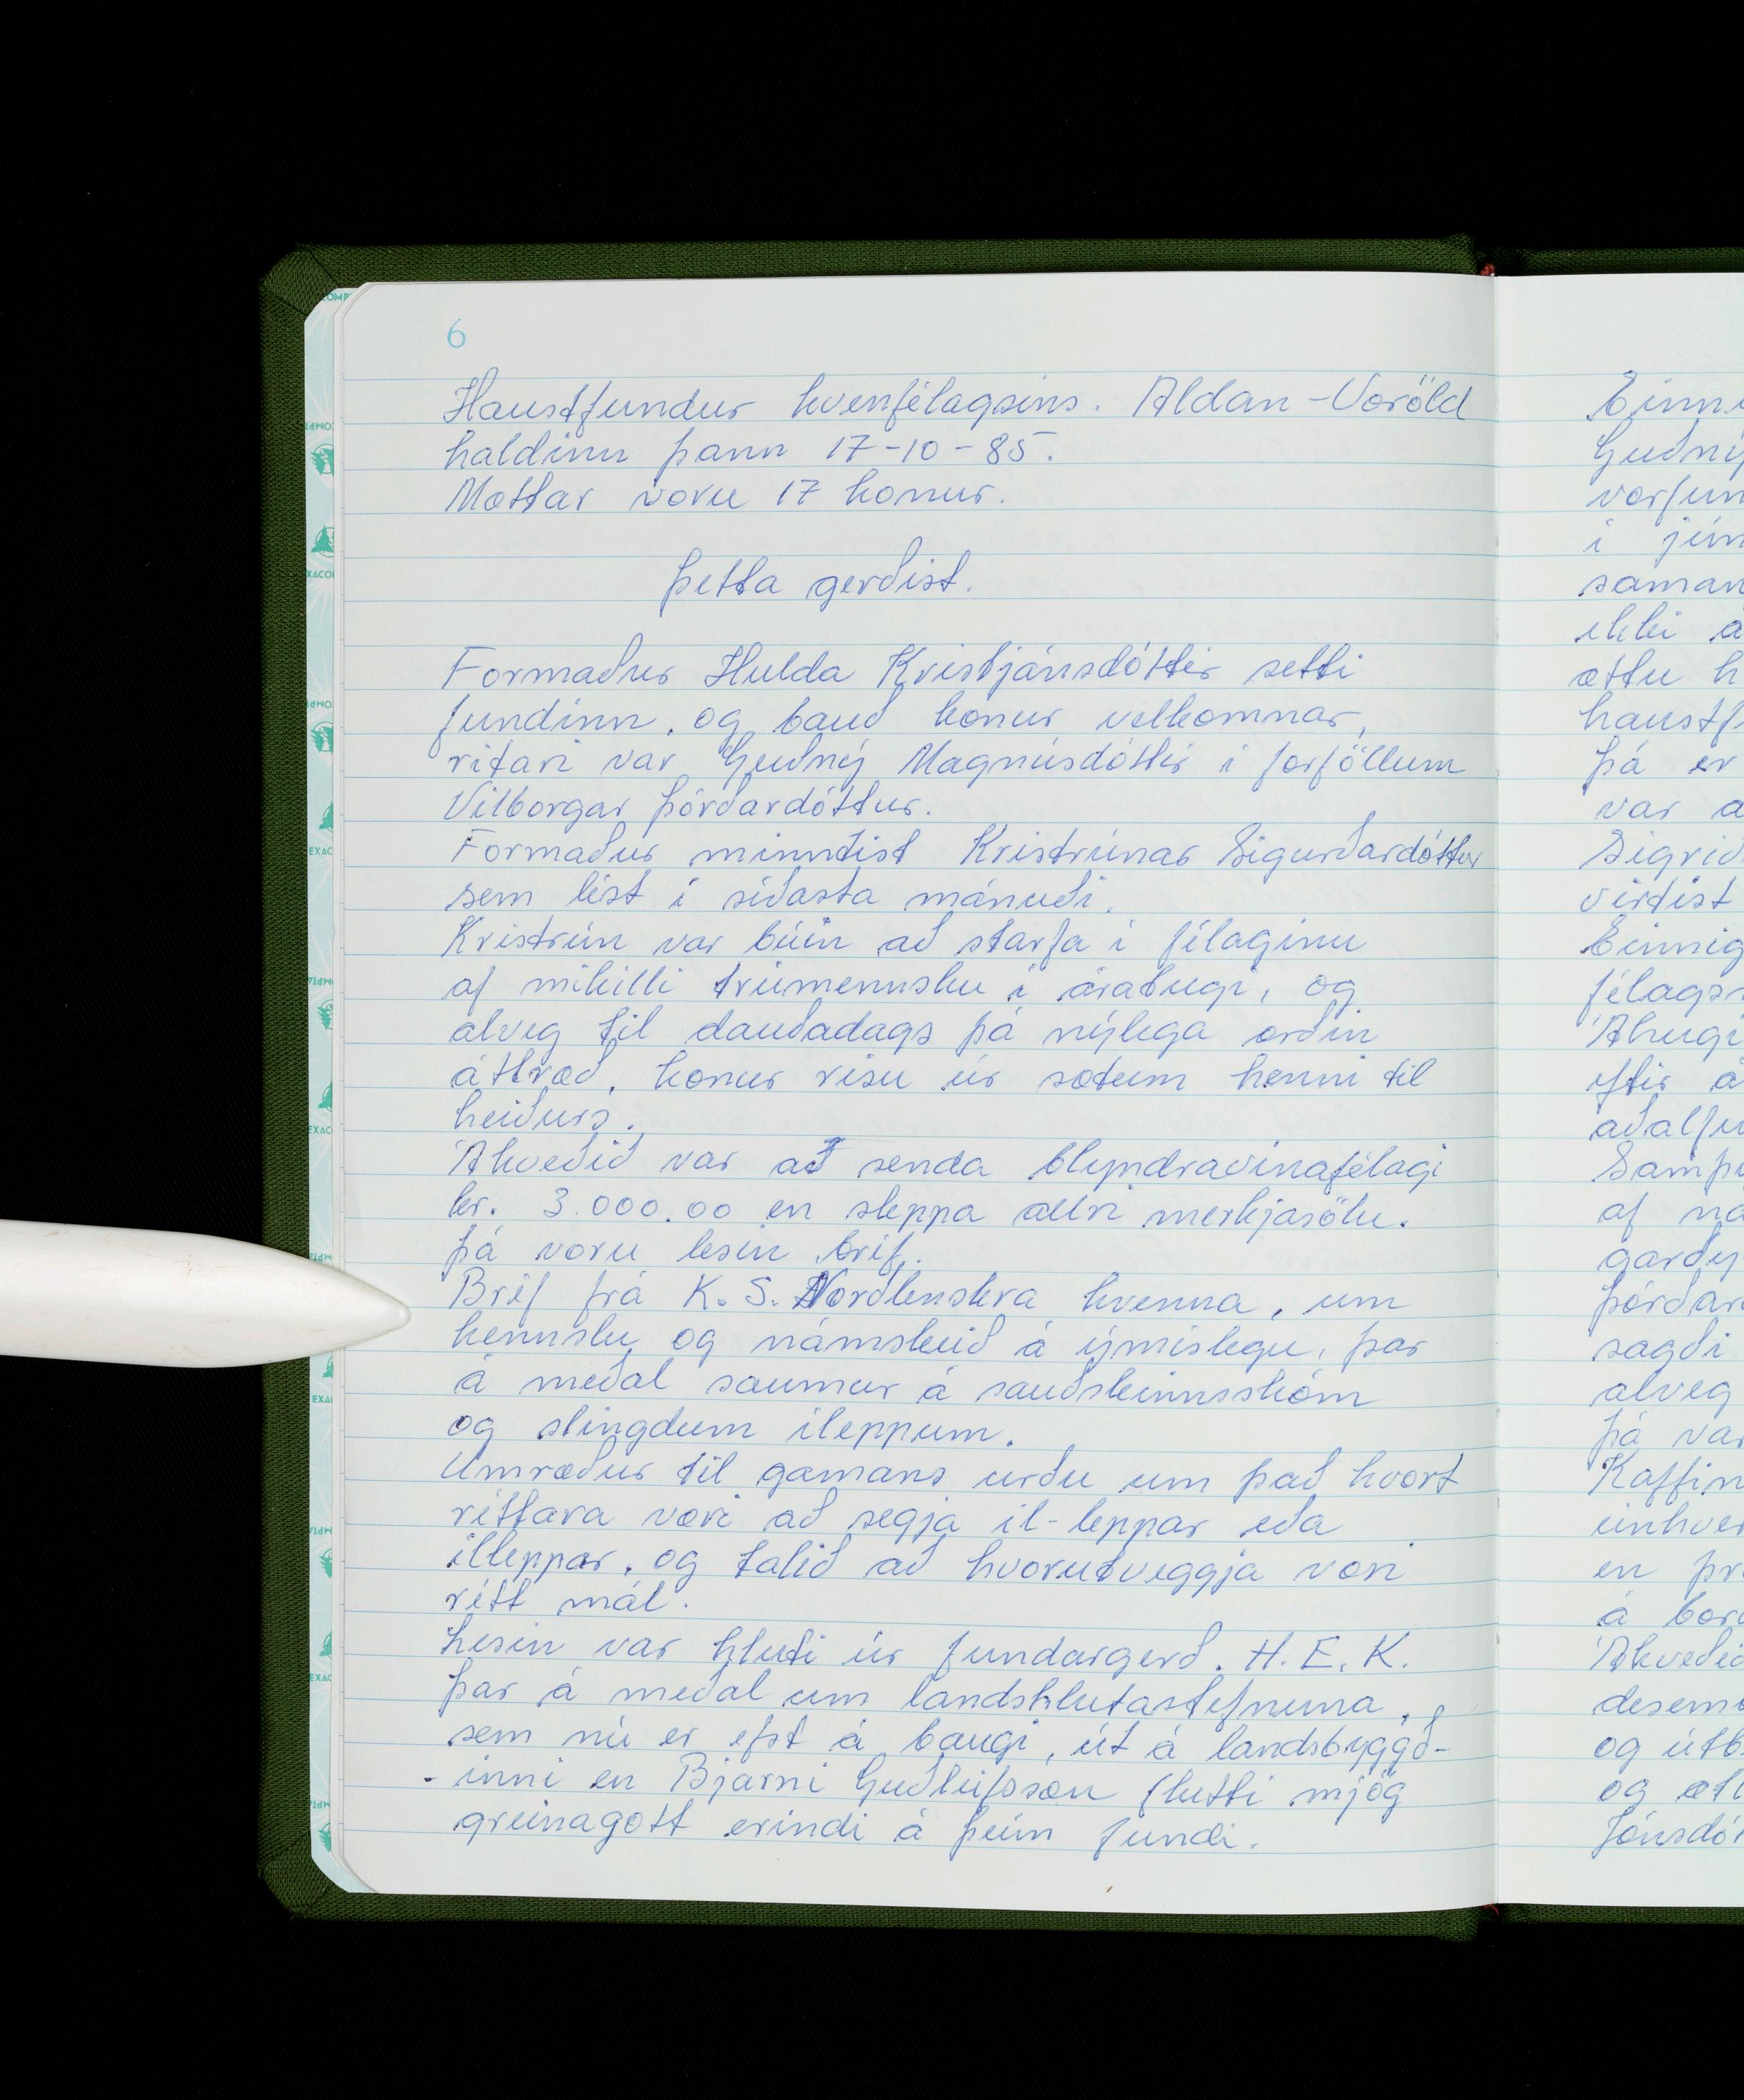 6
Haustfundur kvenfélagsins. Aldan-Voröld
haldinn þann 17-10-85.
Mættar voru 17 konur.
Þetta gerðist.
Formaður Hulda Kristjánsdóttir setti
fundinn, og bauð konur velkomnar,
ritari var Guðný Magnúsdóttir í forföllum
Vilborgar Þórðardóttur.
Formaður minntist Kristrúnar Sigurðardóttur
sem lést í síðasta mánuði.
Kristrún var búin að starfa í félaginu
af mikilli trúmennsku í áratugi, og
alveg til dauðadags þá nýlega orðin
áttræð, konur risu úr sætum henni til
heiðurs.
Ákveðið var að senda blyndravinafélagi
kr. 3.000.00 en sleppa allri merkjasölu.
Þá voru lesin bréf.
Bréf frá K. S. Norðlenskra kvenna, um
kennslu og námskeið á ýmislegu, þar
á meðal saumur á sauðskinnsskóm
og slingdum íleppum.
Umræður til gamans urðu um það hvort
réttara væri að segja íl-leppar eða
illeppar, og talið að hvorutveggja væri
rétt mál.
Lesin var hluti úr fundargerð. H. E. K.
þar á meðal um landshlutastefnuna,
sem nú er efst á baugi, út á landsbyggð-
-inni en Bjarni Guðleifsson flutti mjög
greinagott erindi á þeim fundi.
Einni
Guðný
vorfun
í jún
saman
ekki á
ættu h
haustf
þá er
var a
Sigríð
virtist
Einnig
félags
Áhugi
eftir á
aðalfu
Samþ
af ná
garðy
Þórðar
sagði
alveg
Þá var
Kaffin
einhver
en pr
á bor
Ákveðið
desemb
og útb
og ætl
Jónsdót